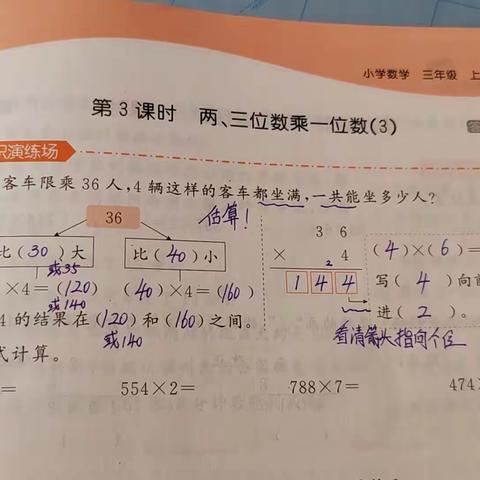 小学数学 三年级 上
第3课时 两、三位数乘一位数(3)
识演练场
客车限乘36人,4辆这样的客车都坐满,一共能坐多少人?
36
估算!
比(30)大
或35
比(40)小
×4=(120)
或140
(40)×4=(160)
4的结果在(120)和(160)之间。
或140
3 6
× 4
2
1 4 4
(4)×(6)=
写(4)向前
进(2)。
看清箭头指向个位
式计算。
=
554×2=
788×7=
474